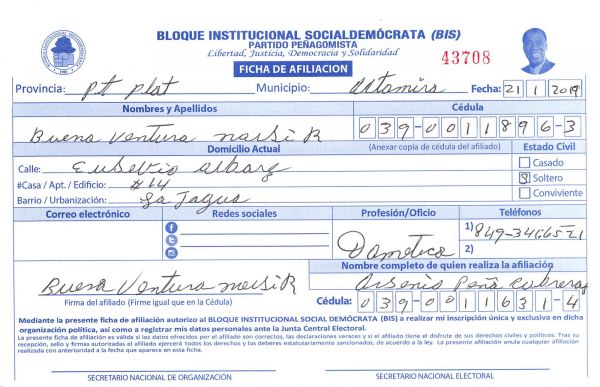 BLOQUE INSTITUCIONAL SOCIALDEMÓCRATA (BIS)
PARTIDO PEÑAGOMISTA
Libertad, Justicia, Democracia y Solidaridad
43708
FICHA DE AFILIACION
Provincia: Pt Plat Municipio: Altamira Fecha: 21 1 2019
Nombres y Apellidos Cédula
Buena Ventura R 039-0011896-3
Domicilio Actual (Anexar copia de cédula del afiliado) Estado Civil
Calle: Eusevio Casado
#Casa / Apt. / Edificio: #14 Soltero
Barrio / Urbanización: La Jagua Conviviente
Correo electrónico Redes sociales Profesión/Oficio Teléfonos
1) 849-3466521
Domestica 2)
Nombre completo de quien realiza la afiliación
Buena Ventura R Arsenio Peña Cabrera
Firma del afiliado (Firme igual que en la Cédula) Cédula: 039-0011631-4
Mediante la presente ficha de afiliación autorizo al BLOQUE INSTITUCIONAL SOCIAL DEMÓCRATA (BIS) a realizar mi inscripción única y exclusiva en dicha
organización política, así como a registrar mis datos personales ante la Junta Central Electoral.
La presente ficha de afiliación es válida si los datos ofrecidos por el afiliado son correctos, las declaraciones veraces y si el afiliado tiene el disfrute de sus derechos civiles y políticos. Tras su
recepción, sello y firmas autorizadas el afiliado ejercerá todos los derechos y los deberes estatutariamente sancionados, de acuerdo a la ley. La presente afiliación anula cualquier afiliación
realizada con anterioridad a la fecha que aparece en esta ficha.
SECRETARIO NACIONAL DE ORGANIZACIÓN SECRETARIO NACIONAL ELECTORAL